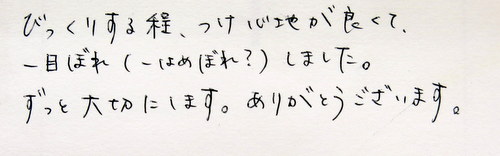 びっくりする程、つけ心地が良くて、
一目ぼれ(一はめぼれ?)しました。
ずっと大切にします。ありがとうございます。